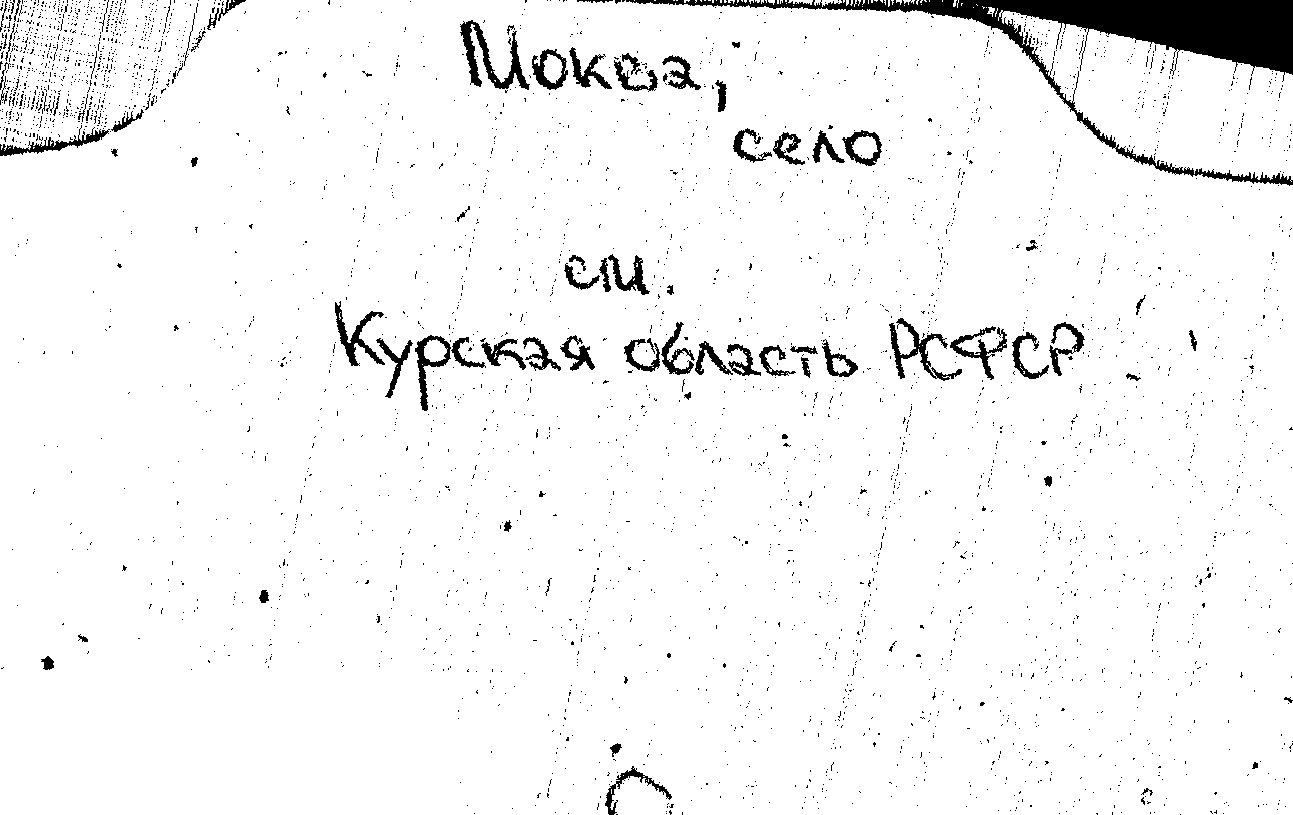 Моква,
село
см.
Курская область РСФСР